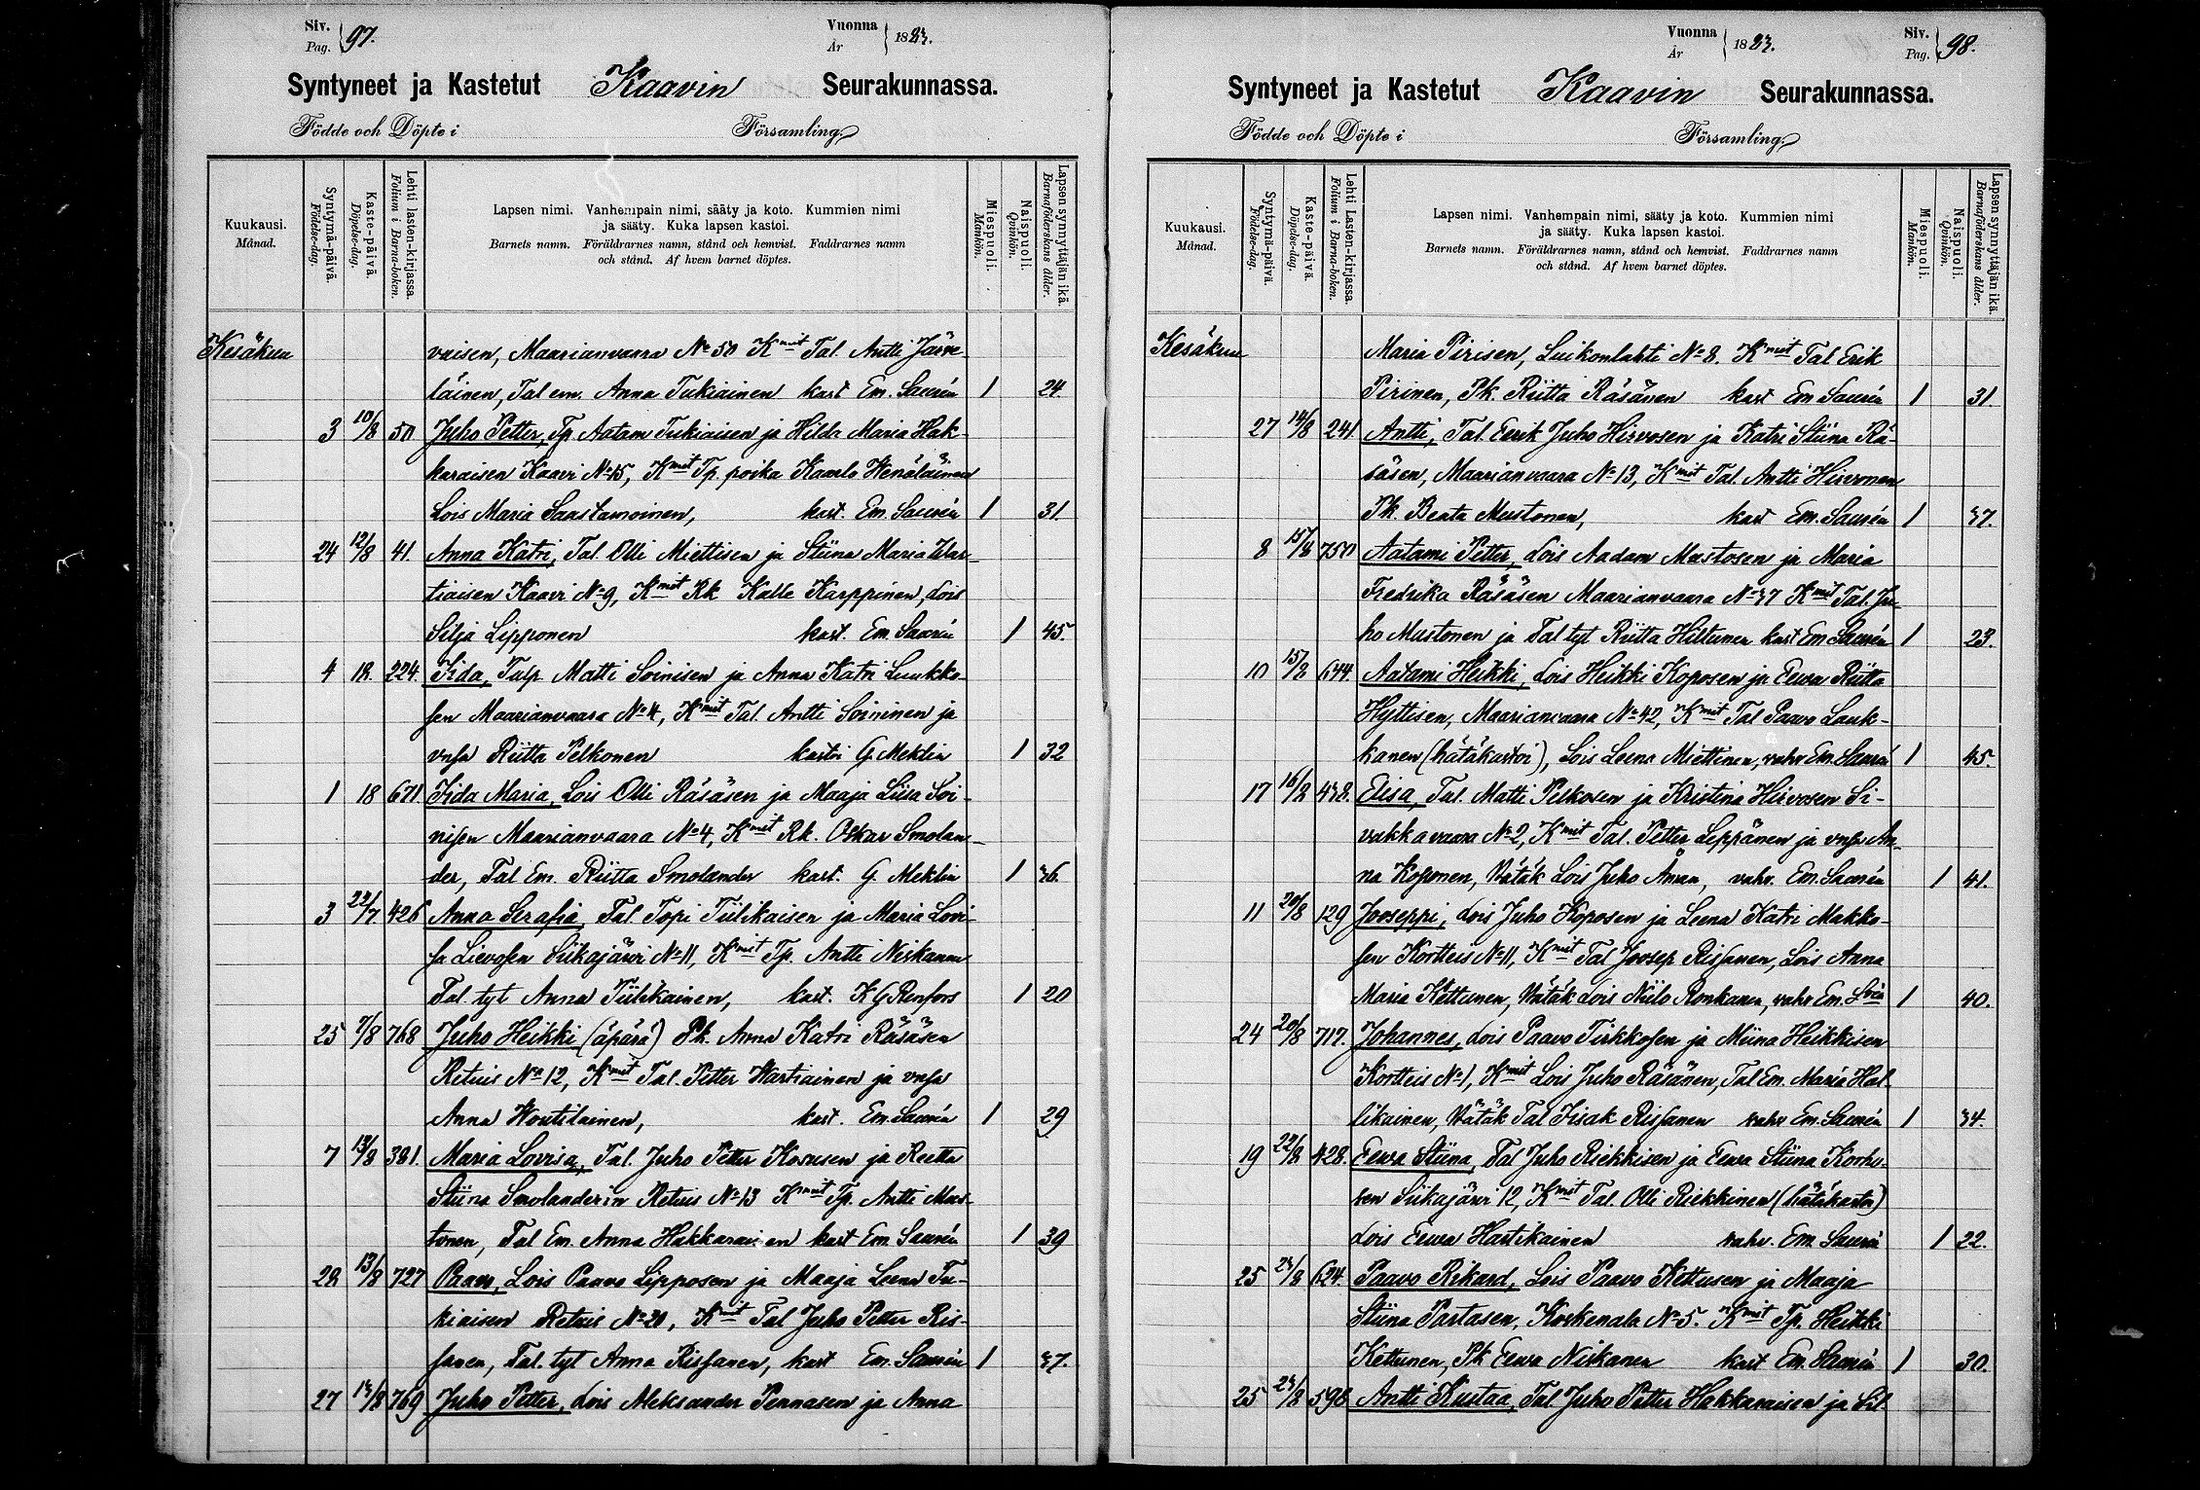 Siv. Pag. 97. Vuonna År 18
Syntyneet ja Kastetut Kaavin Seurakunnassa.
Födde och Döpte i Församling
Kuukausi. Månad.
Syntymä-päivä. Födelse-dag.
Kaste-päivä. Döpelse-dag.
Lehti lasten-kirjassa. Folium i Barna-boken.
Lapsen nimi. Vanhempain nimi, sääty ja koto. Kummien nimi
ja sääty. Kuka lapsen kastoi.
Barnets namn. Föräldrarnes namn, stånd och hemvist. Faddrarnes namn
och stånd. Af hvem barnet döptes.
Miespuoli. Mankön.
Naispuoli. Qvinkön.
Lapsen synnyttäjän ikä. Barnaföderskans ålder.
Kesäkuu vaisen, Maarianvaara No 50 Kmit Tal. Antti Järve-
läinen, Tal em. Anna Tukiainen kast Em. Saurén 1 24
3 10/8 50 Juho Petter, Tp Aatam Tukiaisen ja Hilda Maria Hak-
karaisen Kaavi No 15, Kmit Tp. poika Kaarlo Wenäläinen
Lois Maria Saastamoinen, kast. Em. Saurén 1 31.
24 12/8 41. Anna Katri, Tal. Olli Miettisen ja Stiina Maria War-
tiaisen Kaavi No 9, Kmit Rk Kalle Karppinen, Lois
Silja Lipponen kast. Em. Saurén 1 45.
4 18. 224. Iida, Tulp Matti Soinisen ja Anna Katri Luukko-
sen Maarianvaara No 4, Kmit Tal. Antti Soininen ja
vmsa Riitta Pelkonen kastoi G. Meklin 1 32
1 18 671 Iida Maria, Lois Olli Räsäsen ja Maaja Liisa Soi-
nisen Maarianvaara No 4, Kmit Rk. Oskar Smolan-
der, Tal Em. Riitta Smolander kast. G. Meklin 1 36.
3 22/7 426 Anna Serafia, Tal. Topi Tiilikaisen ja Maria Lovi-
sa Lievosen Siikajärvi No 11, Kmit Tp. Antti Niskanen
Tal. tyt Anna Tiilikainen, kast. K G Renfors 1 20
25 7/8 768 Juho Heikki (äpärä) Pk. Anna Katri Räsäsen
Retuis No 12, Kmit Tal. Petter Wartiainen ja vmsa
Anna Woutilainen, kast. Em. Saurén 1 29
7 13/8 381. Maria Lovisa, Tal. Juho Petter Kosusen ja Reetta
Stiina Smolanderin Retuis No 13 Kmit Tp. Antti Mus-
tonen, Tal Em. Anna Hakkarainen kast Em. Saurén 1 39
28 13/8 727 Paavo, Lois Paavo Lipposen ja Maaja Leena Tu-
kiaisen Retuis No 20, Kmit Tal Juho Petter Ris-
sanen, Tal. tyt Anna Rissanen, kast Em. Saurén 1 37.
27 14/8 769 Juho Petter, Lois Aleksander Pennasen ja Anna
Vuonna År 18 Siv. Pag. 98.
Syntyneet ja Kastetut Kaavin Seurakunnassa.
Födde och Döpte i Församling
Kuukausi. Månad.
Syntymä-päivä. Födelse-dag.
Kaste-päivä. Döpelse-dag.
Lehti Lasten-kirjassa. Folium i Barna-boken.
Lapsen nimi. Vanhempain nimi, sääty ja koto. Kummien nimi
ja sääty. Kuka lapsen kastoi.
Barnets namn. Föräldrarnes namn, stånd och hemvist. Faddrarnes namn
och stånd. Af hvem barnet döptes.
Miespuoli. Mankön.
Naispuoli. Qvinkön.
Lapsen synnyttäjän ikä. Barnaföderskans ålder.
Kesäkuu Maria Pirisen, Luikonlahti No 8. Kmit Tal Erik
Pirinen, Pk. Riitta Räsänen kast Em Saurén 1 31.
27 14/8 241 Antti, Tal. Eerik Juho Hirvosen ja Katri Stiina Rä-
säsen, Maarianvaara No 13, Kmit Tal. Antti Hirvonen
Pk. Beata Mustonen, kast Em. Saurén 1 37.
8 15/8 750 Aatami Petter, Lois Aadam Mustosen ja Maria
Fredrika Räsäsen Maarianvaara No 37 Kmit Tal. Ju-
ho Mustonen ja Tal tyt Riitta Hiltunen kast Em Saurén 1 23.
10 15/8 644 Aatami Heikki, Lois Heikki Koposen ja Eewa Riitta
Hyttisen, Maarianvaara No 42, Kmit Tal Paavo Lauk-
kanen (hätäkastoi), Lois Leena Miettinen, vahv. Em. Saurén 1 45.
17 16/8 438. Elisa, Tal. Matti Pelkosen ja Kristina Hirvosen Si-
vakkavaara No 2, Kmit Tal. Petter Leppänen ja vmsa An-
na Koponen, Hätäk Lois Juho Åman, vahv. Em. Saurén 1 41.
11 20/8 129 Jooseppi, Lois Juho Koposen ja Leena Katri Makko-
sen Kortteis No 11, Kmit Tal Joosep Rissanen, Lois Anna
Maria Kettunen, Hätäk Lois Niilo Ronkanen, vahv Em. 1 40.
24 20/8 717. Johannes, Lois Paavo Tirkkosen ja Miina Heikkisen
Kortteis No 1, Kmit Lois Juho Räsänen, Tal Em. Maria Hal-
likainen, Hätäk Tal Iisak Rissanen vahv Em. Saurén 1 34.
19 22/8 428. Eewa Stiina, Tal Juho Riekkisen ja Eewa Stiina Korho-
sen Siikajärvi 12, Kmit Tal. Olli Riekkinen (hätäkasta)
Lois Eewa Hartikainen vahv. Em. Saurén 1 22.
25 24/8 624. Paavo Rikard, Lois Paavo Kettusen ja Maaja
Stiina Partasen, Koskenala No 5. Kmit Tp. Heikki
Kettunen, Pk Eewa Niskanen kast Em. Saurén 1 30.
25 24/8 598 Antti Kustaa, Tal Juho Petter Hakkaraisen ja Sil-